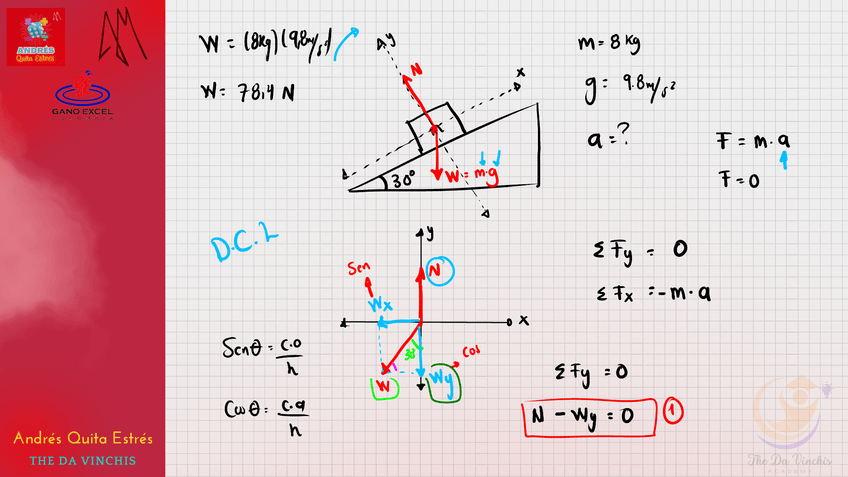 ANDRÉS
Quita Estrés
AM
GANO EXCEL
W = (8kg)(9.8m/s²)
W = 78.4 N
y
N
x
30°
W = m·g
m = 8 kg
g = 9.8m/s²
a = ?
F = m·a
F = 0
D.C.L
y
Sen
N
Wx
x
30°
Cos
W
Wy
Senθ = c.o/h
Cosθ = c.a/h
ΣFy = 0
ΣFx = -m·a
ΣFy = 0
N - Wy = 0 1
Andrés Quita Estrés
THE DA VINCHIS
The Da Vinchis
ACADEMY